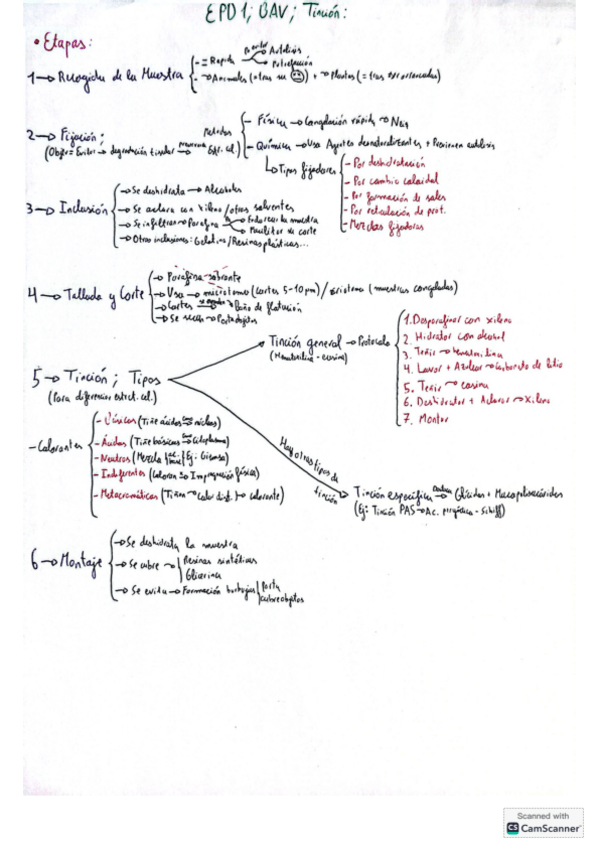 EPD1; BAV; Tinción:
• Etapas:
1 → Recogida de la Muestra
- = Rápida → Autolisis
Putrefacción
- → Animales (+tras su ☹) + → Plantas (= tras
2 → Fijación;
(Objetivo = Evitar → degradación tisular → Estr. cel.)
Métodos
- Física → Congelación rápida → N₂
- Química → Usa Agentes desnaturalizantes + Previenen autolisis
↳ Tipos fijadores
- Por deshidratación
- Por cambio coloidal
- Por formación de sales
- Por reticulación de prot.
- Mezclas fijadoras
3 → Inclusión
→ Se deshidrata → Alcoholes
→ Se aclara con xileno/otros solventes
→ Se infiltra → Parafina → Endurecer la muestra
Facilitar de corte
→ Otras inclusiones: Gelatina/Resinas plásticas...
4 → Tallado y Corte
→ Parafina sobrante
→ Usa → microtomo (cortes 5-10 µm) / criotomo (muestras congeladas)
→ Cortes → Baño de flotación
→ Se secan → Portaobjetos
5 → Tinción; Tipos
(Para diferenciar estruct. cel.)
Tinción general → Protocolo
(Hematoxilina - eosina)
1. Desparafinar con xileno
2. Hidratar con alcohol
3. Teñir → hematoxilina
4. Lavar + Azulear → Carbonato de litio
5. Teñir → eosina
6. Deshidratar + Aclarar → Xileno
7. Montar
- Colorantes
- Básicos (Tiñe ácidos → núcleos)
- Ácidos (Tiñe básicos → Citoplasma)
- Neutros (Mezcla ác. bas. Ej: Giemsa)
- Indiferentes (Coloran → Impregnación física)
- Metacromáticos (Tiñen → color dist. → colorante)
Hay otros tipos de
tinción
Tinción específica → Glúcidos + Mucopolisacáridos
(Ej: Tinción PAS → Ác. peryódico - Schiff)
6 → Montaje
→ Se deshidrata la muestra
→ Se cubre → Resinas sintéticas
Glicerina
→ Se evita → Formación burbujas porta
cubreobjetos
Scanned with
CS CamScanner